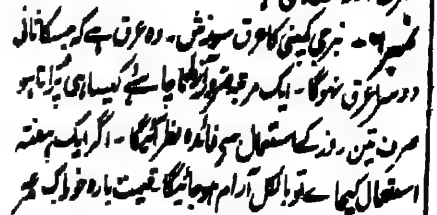 نمبر ۹۔ نبرجی کمپنی کا عرق سوزش۔ وہ عرق ہے کہ جسکا ثانی
دوسرا عرق نہوگا۔ ایک مرتبہ ضرور آزمانا چاہئے کیسا ہی پُرانا ہو
صرف تین روز کے استعمال سے فائدہ نظر آئیگا۔ اگر ایک ہفتہ
استعمال کیجاے تو بالکل آرام ہو جائیگا قیمت بارہ خوراک عمر